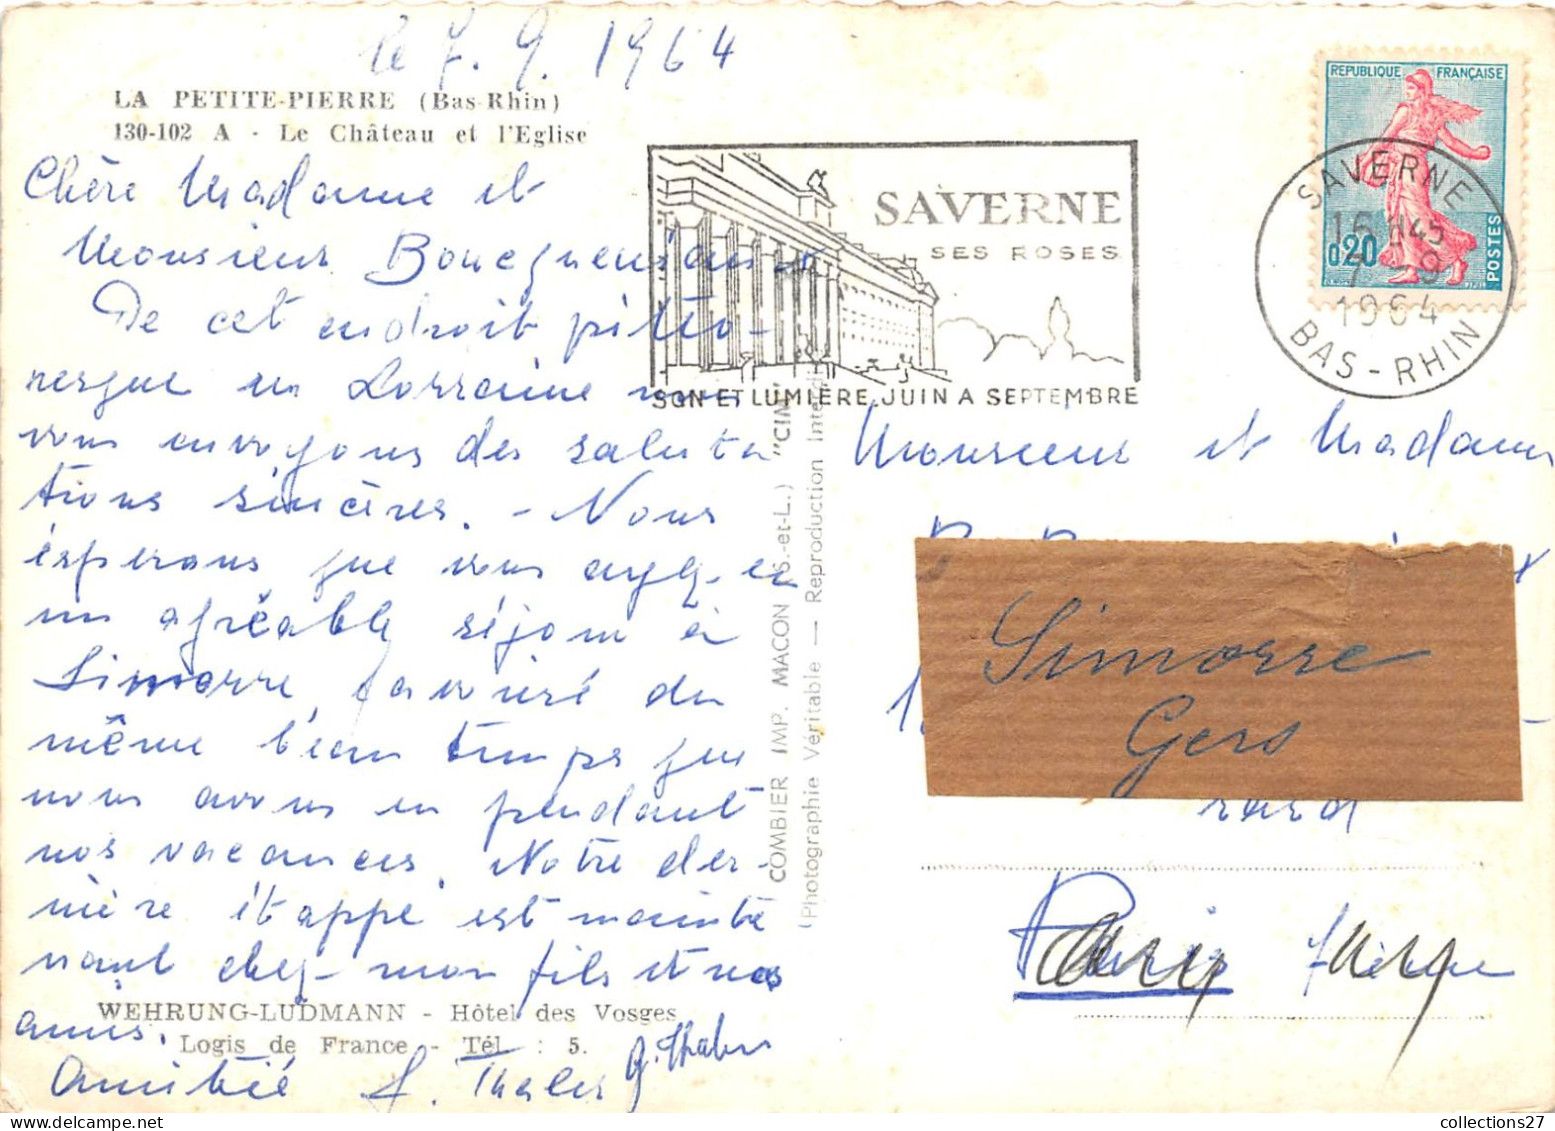 le 7. 9. 1964
LA PETITE-PIERRE (Bas-Rhin)
130-102 A - Le Château et l'Eglise
Chère Madame et
Monsieur
De cet endroit pitto-
resque en Lorraine nous
vous envoyons des saluta
tions sincères. - Nous
espérons que vous ayez eu
un agréable séjour à
Simorre, favorisé du
même beau temps que
nous avons eu pendant
nos vacances. Notre der-
nière étappe est mainte
nant chez mon fils et nos
amis.
WEHRUNG-LUDMANN - Hôtel des Vosges
Logis de France - Tél. : 5.
Amitié
SAVERNE
SES ROSES
SON ET LUMIÈRE JUIN A SEPTEMBRE
COMBIER IMP. MACON (S.-et-L.) "CIM"
(Photographie Véritable — Reproduction Interdi
REPUBLIQUE FRANÇAISE
0,20
POSTES
SAVERNE
16 H45
7 - 9
1964
BAS-RHIN
Monsieur et Madame
Simorre
Gers
Paris
collections27